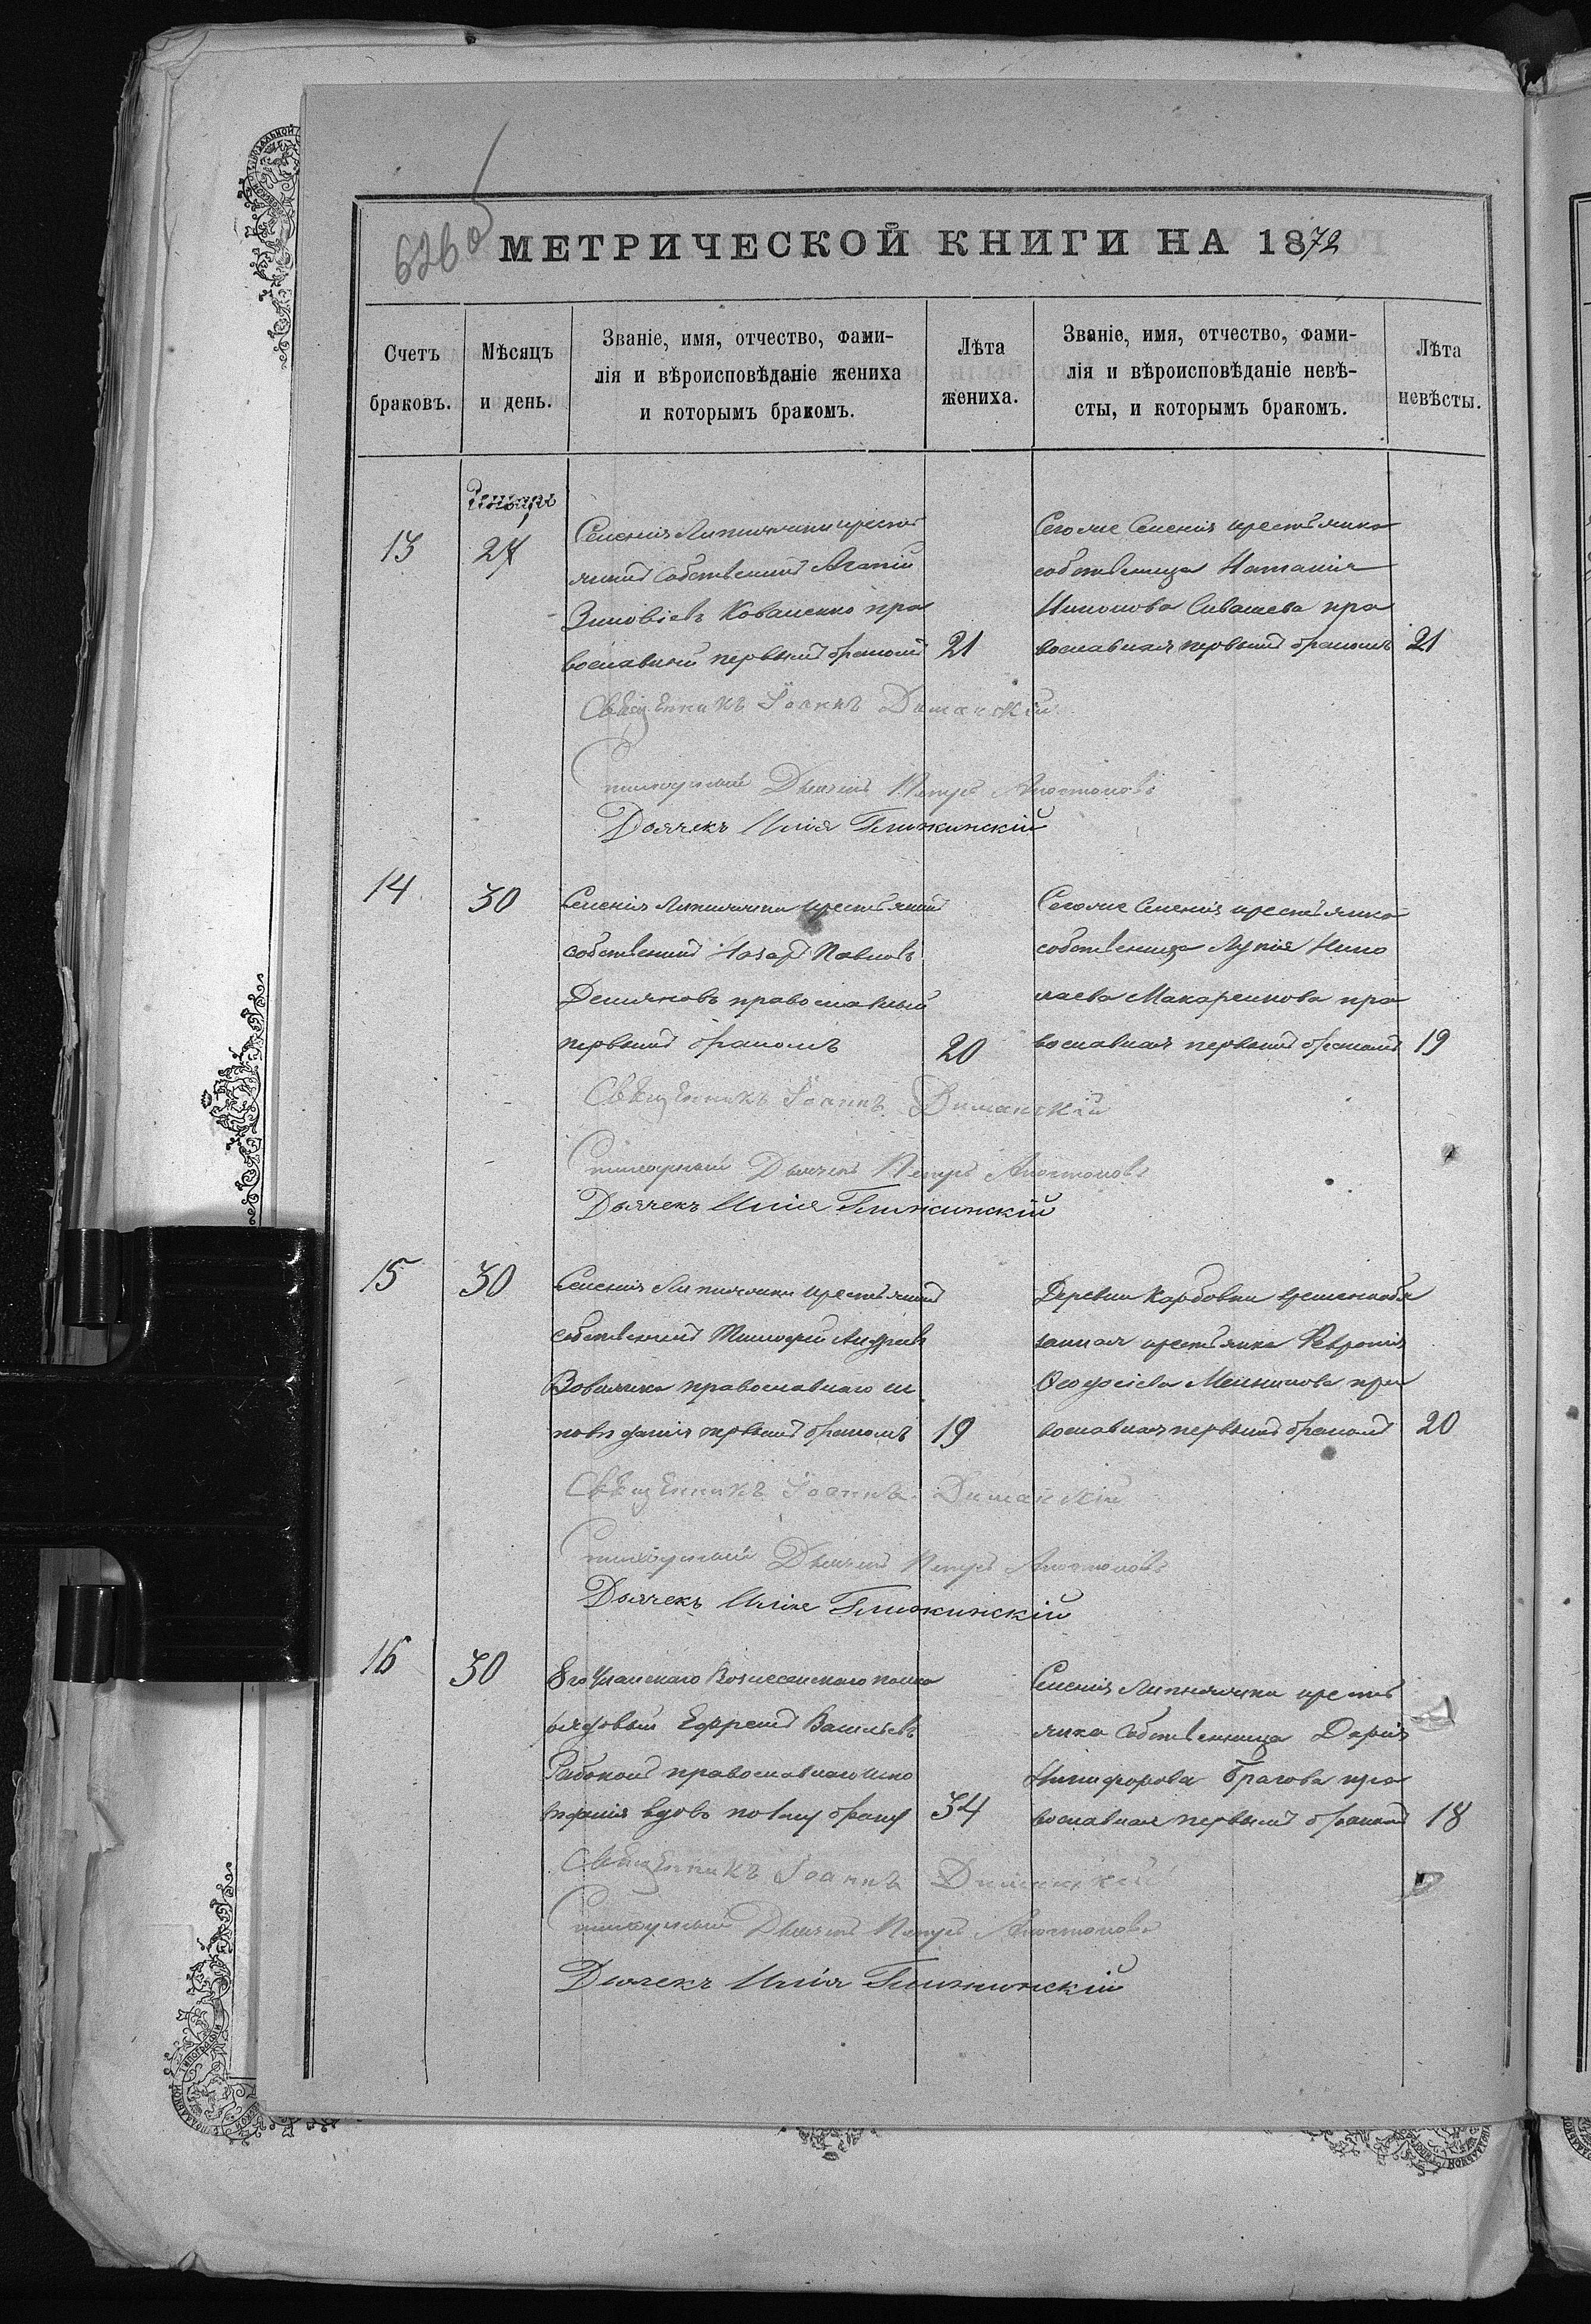 626 об
МЕТРИЧЕСКОЙ КНИГИ НА 1872
Счетъ браковъ.
Мѣсяцъ и день.
Званіе, имя, отчество, фами-
лія и вѣроисповѣданіе жениха
и которымъ бракомъ.
Лѣта жениха.
Званіе, имя, отчество, фами-
лія и вѣроисповѣданіе невѣ-
сты, и которымъ бракомъ.
Лѣта невѣсты.
Генварь
13
27
Селенія Липнячки кресть
янинъ собственникъ Агапій
Зиновіевъ Коваленко пра
вославный первымъ бракомъ
21
Сегоже Селенія крестьянка
собственница Наталія
Сивашева пра
вославная первымъ бракомъ
21
Священникъ Іоаннъ Диманскій
Стихарный Дьячекъ Петръ Апостоловъ
Дьячекъ Илія Глижинскій
14
30
Селенія Липнячки крестьянинъ
собственникъ Назаръ Павловъ
Демяновъ православный
первымъ бракомъ
20
Сегоже Селенія крестьянка
собственница Лукія Нико
лаева Макаренкова пра
вославная первымъ бракомъ
19
Священникъ Іоаннъ Диманскій
Стихарный Дьячекъ Петръ Апостоловъ
Дьячекъ Илія Глижинскій
15
30
Селенія Липнячки крестьянинъ
собственникъ Тимофей Андреевъ
православнаго ис
повѣданія первымъ бракомъ
19
Деревни Карбовки временнообя
занная крестьянка Февронія
Ѳеодосіева Мельникова пра
вославная первымъ бракомъ
20
Священникъ Іоаннъ Диманскій
Стихарный Дьячекъ Петръ Апостоловъ
Дьячекъ Илія Глижинскій
16
30
8го Уланскаго Вознесенскаго полка
рядовый Ефремъ Васильевъ
православнаго испо
вѣданія вдовъ по 1му браку
34
Селенія Липнячки кресть
янка собственница Дарія
Никифорова Брагова пра
вославная первымъ бракомъ
18
Священникъ Іоаннъ Диманскій
Стихарный Дьячекъ Петръ Апостоловъ
Дьячекъ Илія Глижинскій